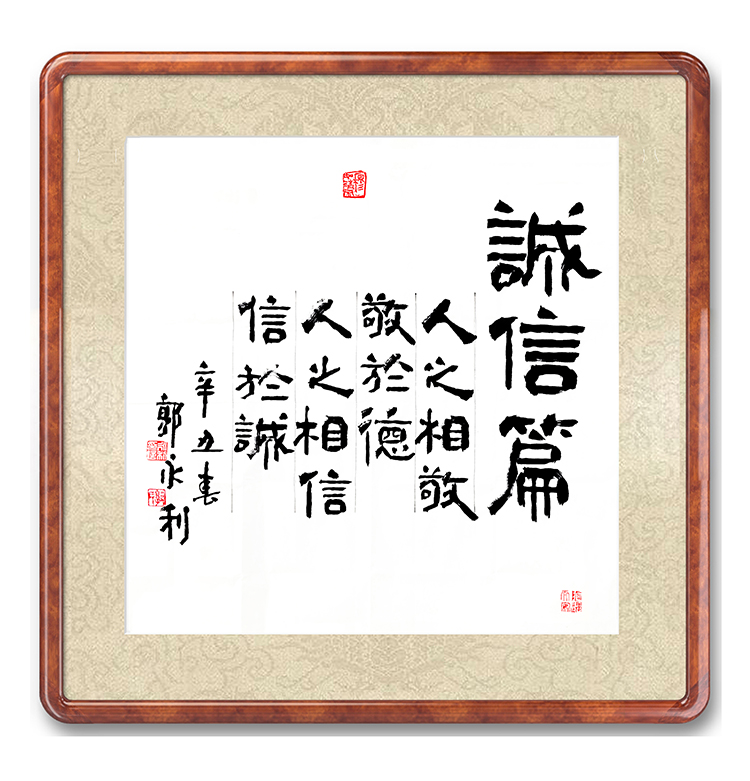 誠信篇
人之相敬
敬於德
人之相信
信於誠
辛丑春
郭永利